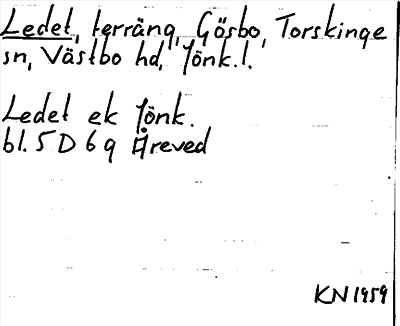 Ledet, terräng, Gösbo, Torskinge
sn, Västbo hd, Jönk.l.
Ledet ek Jönk.
bl. 5 D 6 g Åreved
KN 1959